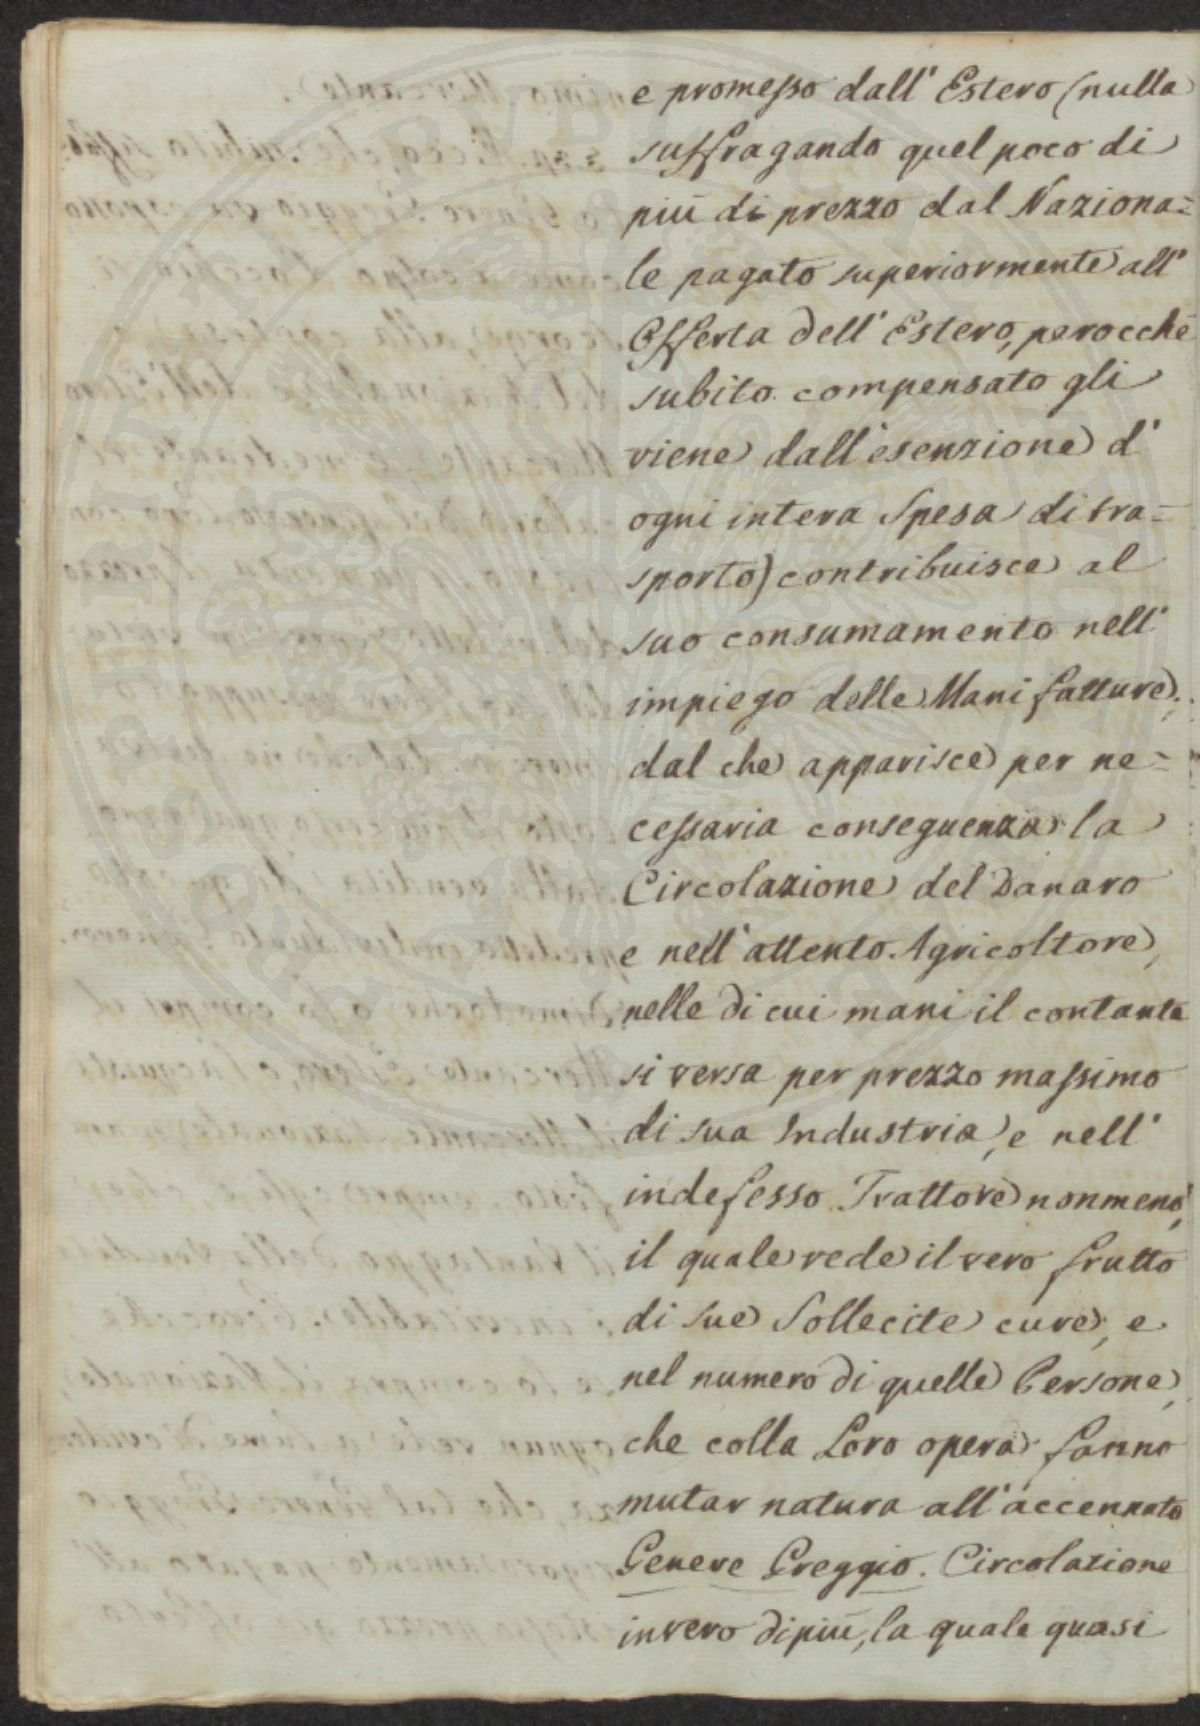 e promesso dall' Estero (nulla
suffragando quel poco di
più di prezzo dal Naziona=
le pagato superiormente all'
Offerta dell' Estero, perocchè
subito compensato gli
viene dall'esenzione d'
ogni intera Spesa di tra=
sporto) contribuisce al
suo consumamento nell'
impiego delle Manifatture;
dal che apparisce per ne=
cessaria conseguenza la
Circolazione del Danaro
e nell'attento Agricoltore,
nelle di cui mani il contante
si versa per prezzo massimo
di sua Industria, e nell'
indefesso Trattore nonmeno,
il quale vede il vero frutto
di sue Sollecite cure, e
nel numero di quelle Persone,
che colla Loro opera fanno
mutar natura all'accennato
Genere Greggio. Circolazione
invero di più, la quale quasi